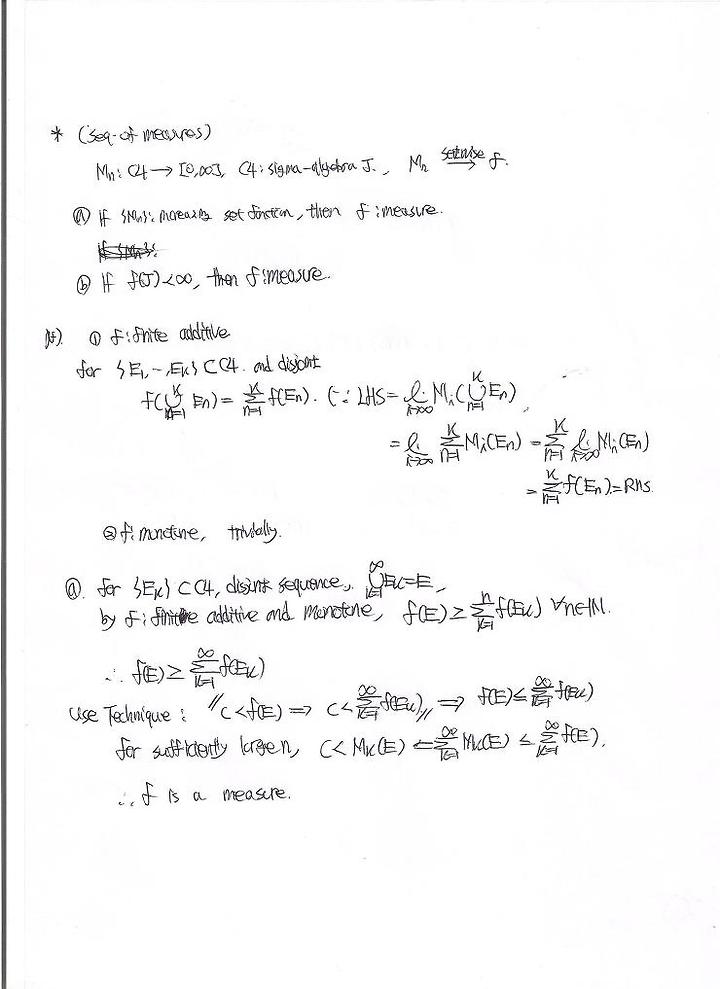 * (seq. of measures)
Mₙ: C4 → [0,∞], C4: sigma-algebra J., Mₙ setwise→ f.
ⓐ If {Mₙ}: increasing set function, then f: measure.
ⓑ If f(J)<∞, then f: measure.
pf). ① f: finite additive
for {E₁, ~, E_K} ⊂ C4. and disjoint
f(⋃_{n=1}^{K} Eₙ) = Σ_{n=1}^{K} f(Eₙ). (∵ LHS = l_{i→∞} M_i(⋃_{n=1}^{K} Eₙ)
= l_{i→∞} Σ_{n=1}^{K} M_i(Eₙ) = Σ_{n=1}^{K} l_{i→∞} M_i(Eₙ)
= Σ_{n=1}^{K} f(Eₙ) = RHS.
② f: monotone, trivially.
ⓐ. for {E_k} ⊂ C4, disjoint sequence, ⋃_{k=1}^{∞} E_k = E,
by f: finite additive and monotone, f(E) ≥ Σ_{k=1}^{n} f(E_k) ∀n∈ℕ.
∴ f(E) ≥ Σ_{k=1}^{∞} f(E_k)
use Technique: "c < f(E) ⇒ c < Σ_{k=1}^{∞} f(E_k)" ⇒ f(E) ≤ Σ_{k=1}^{∞} f(E_k)
for sufficiently large n, c < M_k(E) = Σ_{k=1}^{∞} M_k(E) ≤ Σ_{k=1}^{∞} f(E).
∴ f is a measure.